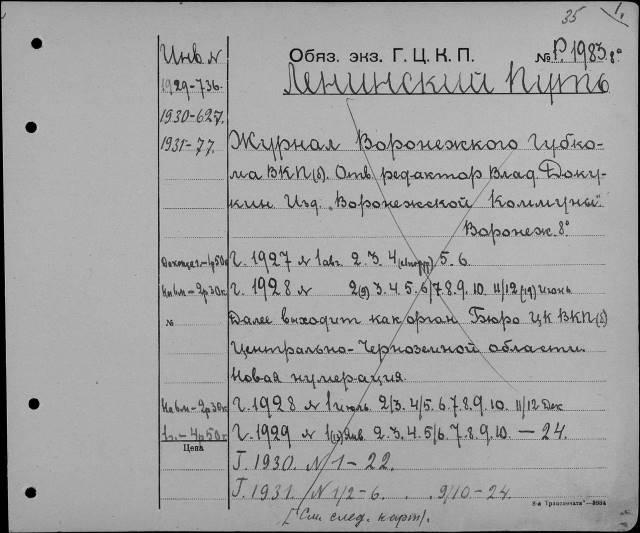 35 1.
Инв. N Обяз. экз. Г. Ц. К. П. № П 1983 8°
1929-736. Ленинский Путь
1930-627.
1931-77. Журнал Воронежского Губко-
ма ВКП(б). Отв. редактор Влад. Доку-
кин Изд. "Воронежской Коммуны"
Воронеж. 8°
До конца г.-1р50к Г. 1927 N 1 авг. 2. 3. 4 5. 6
На 6м - 2р30к Г. 1928 N 2(9) 3. 4. 5. 6/7. 8. 9. 10. 11/12 (19) Июнь
№ Далее выходит как орган Бюро ЦК ВКП(б)
Центрально-Черноземной области.
Новая нумерация.
На 6м - 2р30к Г. 1928 N 1 июль 2/3. 4/5. 6. 7. 8. 9. 10. 11/12 Дек
1г. - 4р50к Г. 1929 N 1(13) Янв. 2. 3. 4. 5/6. 7. 8. 9. 10. — 24.
Цена
Г. 1930. N 1-22.
Г. 1931. N 1/2-6. . . 9/10-24.
8-я "Транспечати"-3884
[См. след. карт].